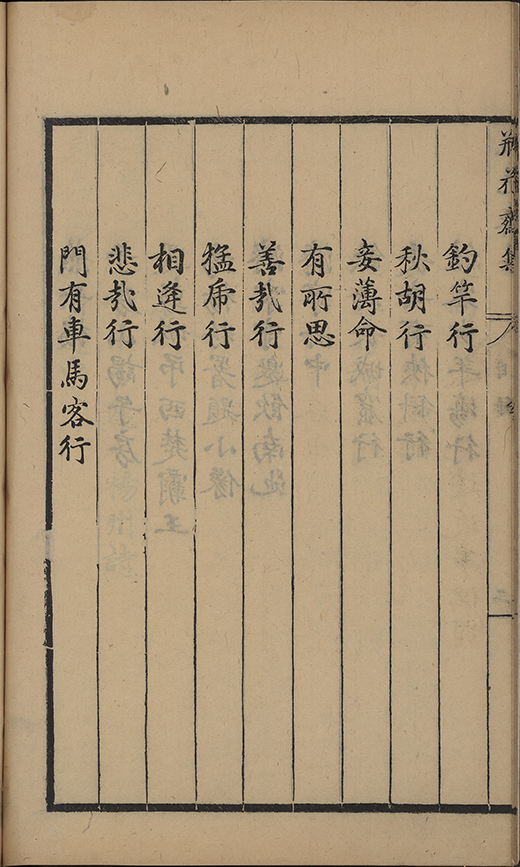 瓶花齋集
釣竿行
秋胡行
妾薄命
有所思
善哉行
猛虎行
相逢行
悲哉行
門有車馬客行